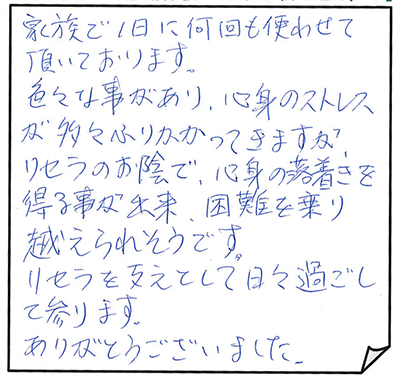 家族で1日に何回も使わせて
頂いております。
色々な事があり、心身のストレス
が多々ふりかかってきますが、
リセラのお陰で、心身の落着きを
得る事が出来、困難を乗り
越えられそうです。
リセラを支えとして日々過ごし
て参ります。
ありがとうございました。